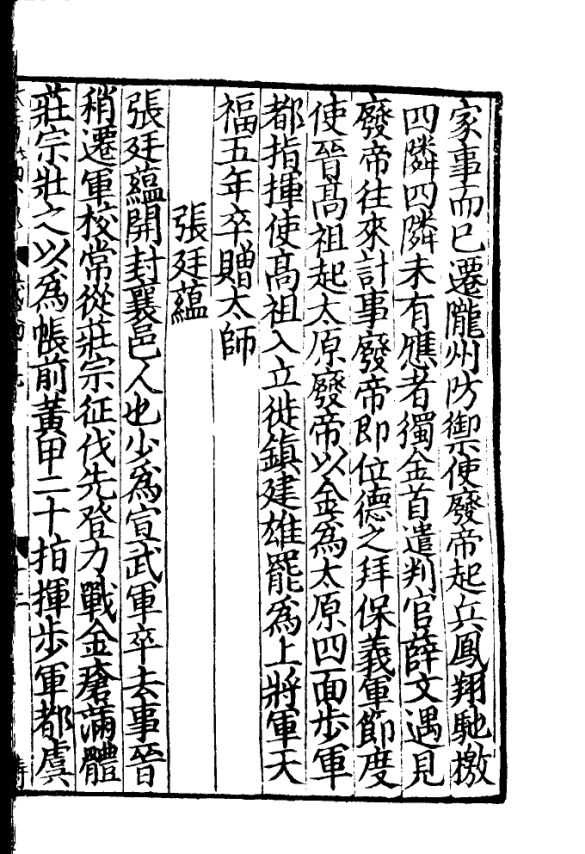 家事而已遷隴州防禦使廢帝起兵鳳翔馳檄
四隣四隣未有應者獨金首遣判官薛文遇見
廢帝往來計事廢帝即位德之拜保義軍節度
使晉髙祖起太原廢帝以金爲太原四面步軍
都指揮使髙祖入立徙鎮建雄罷爲上將軍天
福五年卒贈太師
張廷蘊
張廷蘊開封襄邑人也少爲宣武軍卒去事晉
稍遷軍校常從莊宗征伐先登力戰金瘡滿體
莊宗壯之以爲帳前黃甲二十指揮步軍都虞